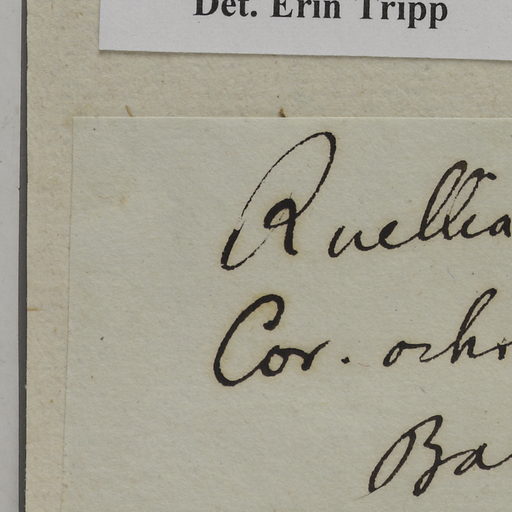 Det. Erin Tripp
Ruellia
Cor. ochr
Ba